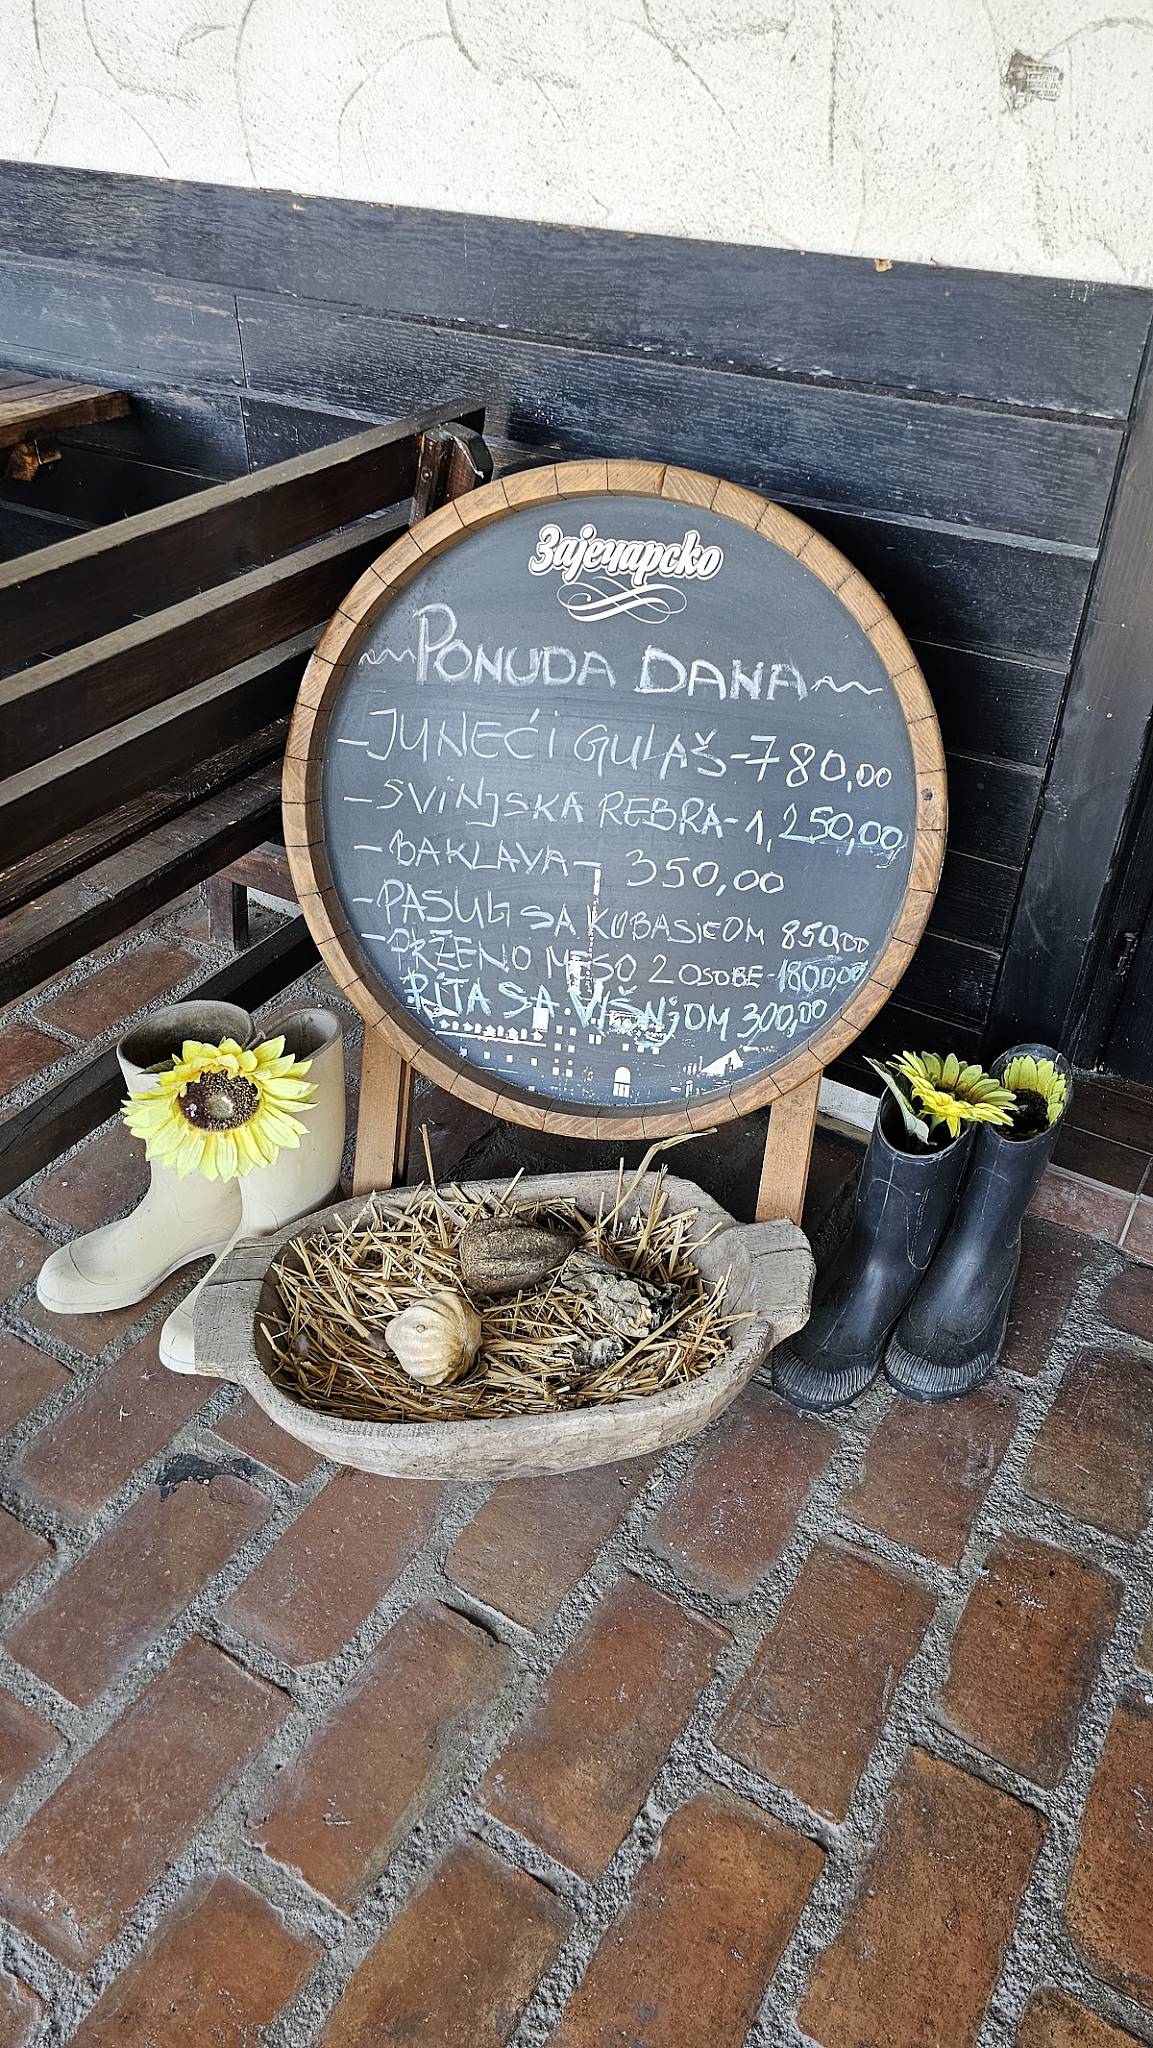 Зајечарско
PONUDA DANA
- JUNEĆi GULAŠ - 780,00
- SViNJSKA REBRA - 1,250,00
- BAKLAVA - 350,00
- PASULj SA KOBASiCOM 850,00
- PRŽENO MESO 2 OSOBE - 1800,00
PITA SA ViŠNjOM 300,00